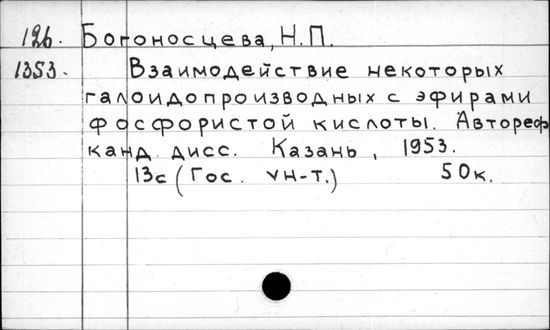 126. Богоносцева, Н.П.
1353. Взаимодействие некоторых
галоидопроизводных с эфирами
фосфористой кислоты. Автореф
канд дисс. Казань, 1953.
13с (Гос. ун-т.) 50к.